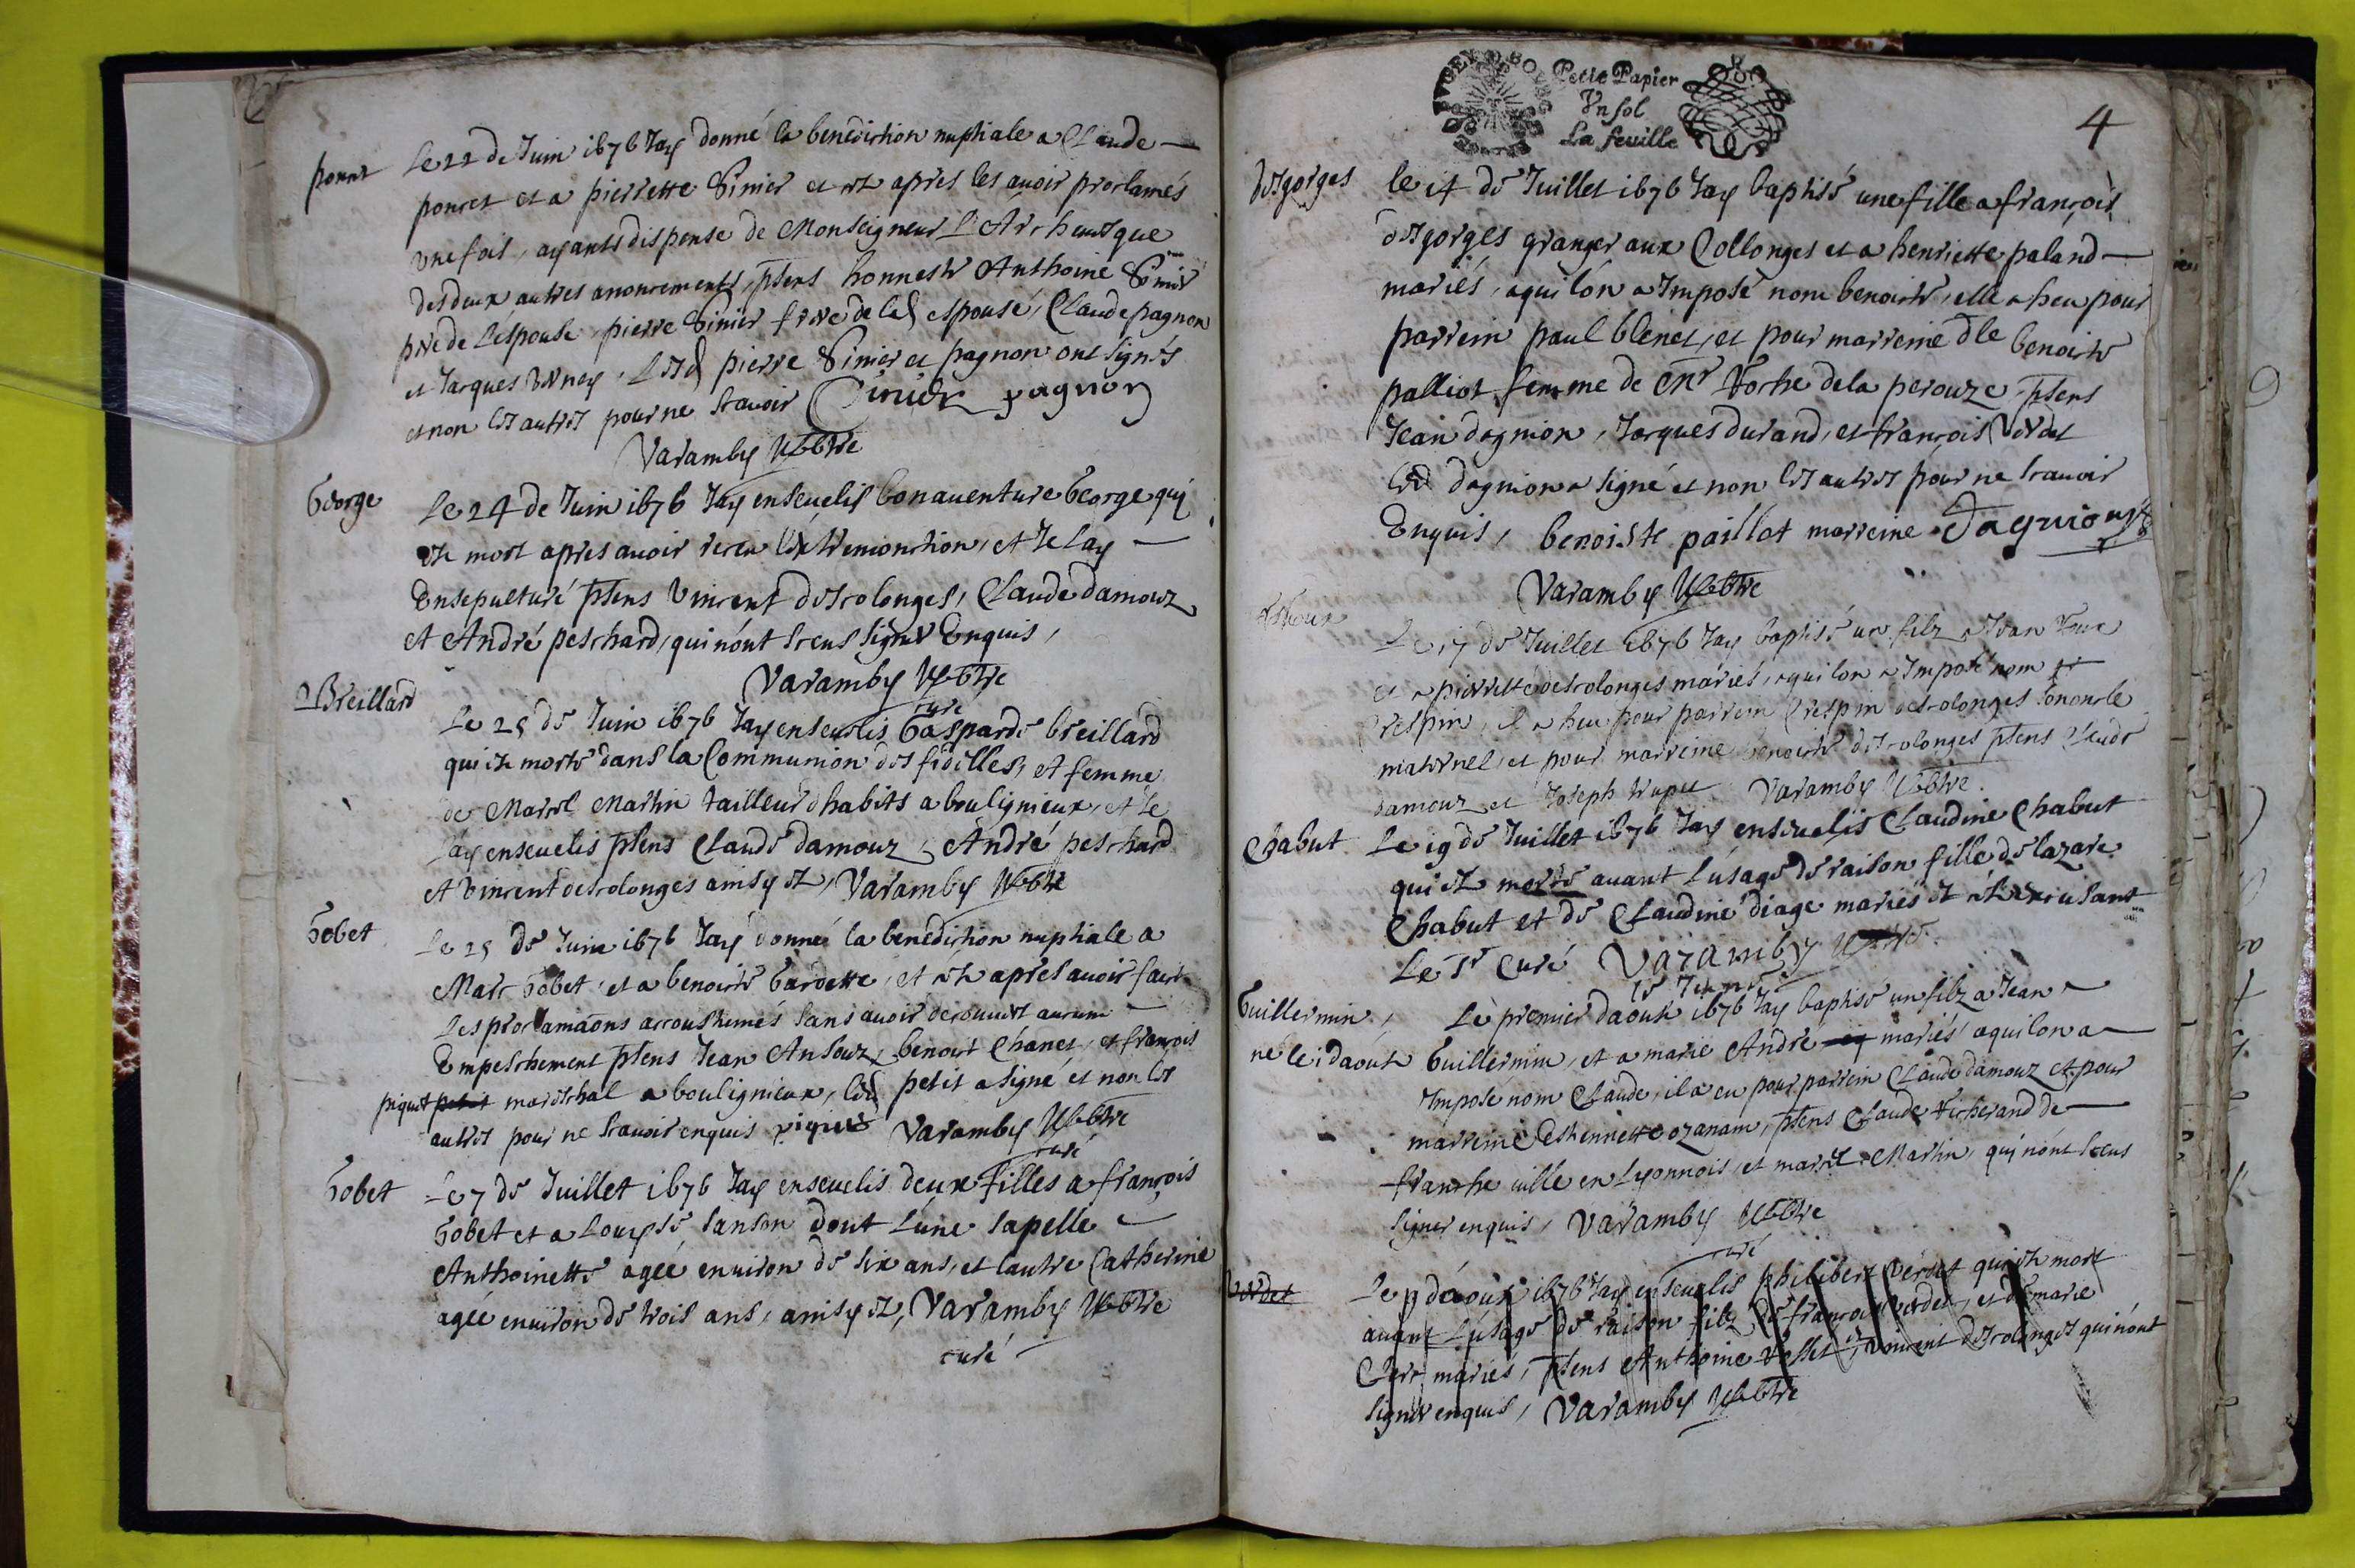 Le 22 de Juin 1676 Jay donné la benediction nuptiale a Claude
ponet
poncet et a pierrette Sinier et ce apres les avoir proclamés
une fois, ayants dispense de Monseigneur L'Archevesque
des deux autres anoncements, pñts honneste Anthoine Sinier
pere de Lespouse, pierre Sinier frere de lad espouse, Claude pagnon
et Jacques, lesd pierre Sinier et pagnon ont signés
et non les autres pour ne scavoir Sinier pagnon
Varamby
George
Le 24 de Juin 1676 Jay ensevelis bonaventure George qui
est mort apres avoir receu l'extremonction, et Je l'ay
Ensepulturé pñts Vincent descolonges, Claude damouz
et André peschard, qui nónt sceus signer Enquis,
Varamby
curé
Breillard
Le 25 de Juin 1676 Jay ensevelis Gasparde breillard
qui est morte dans la Communion des fidelles, et femme
de Marcel Martin tailleur d'habits a boulignieux, et Je
l'ay ensevelis pñts Claude damouz, André peschard
et Vincent descolonges ainsy est, Varamby
Gobet
Le 25 de Juin 1676 Jay donné la benediction nuptiale a
Marc Gobet et a benoiste Gardette, et ce apres avoir fait
Les proclamãons accoustumés sans avoir decouvert aucun
Empeschement pñts Jean Ansouz, benoist Chanet, et francois
piquet petit mareschal a boulignieux, led petit a signé et non les
autres pour ne scavoir enquis piquet Varamby
curé
Gobet
Le 7 de Juillet 1676 Jay ensevelis deux filles a francois
Gobet et a Louyse Sanson dont L'une s'apelle
Anthoinette agée environ de six ans, et l'autre Catherine
agée environ de trois ans, ainsy est, Varamby
curé
Petit Papier
Vn sol
La feuille
4
desgorges
le 14 de Juillet 1676 Jay baptisé une fille a francois
desgorges granger aux Collonges et a henriette paland
mariés, a qui lón a Imposé nom benoiste, elle a heu pour
parrein paul blenet, et pour marreine dle benoiste
palliot femme de Mr de la perouze pñts
Jean dagnion, Jacques durand, et francois Verdet
led dagnion a signé et non les autres pour ne scavoir
Enquis, benoiste paillot marreine Dagnion
Varamby
Le 17 de Juillet 1676 Jay baptisé un filz a Jean
et a pierrette descolonges mariés, a qui lon a Imposé nom
Crespin, il a heu pour parrein Crespin descolonges son oncle
maternel, et pour marreine benoiste descolonges pñts Claude
damouz et Joseph Varamby
Chabut
Le 19 de Juillet 1676 Jay ensevelis Claudine Chabut
qui est morte avant L'usage de raison fille de lazare
Chabut et de Claudine diage mariés
Le Sr Curé Varamby
Guillermin
né le 1 daoust
Le premier daoust 1676 Jay baptisé un filz a Jean
Guillermin, et a marie André mariés a qui lon a
Imposé nom Claude, il a eu pour parrein Claude damouz et pour
marreine Estiennette ozanam, pñts Claude Vicherand de
francheville en Lyonnois, et marcel Martin, qui nónt sceus
signer enquis, Varamby
curé
Verdet
Le 9 d'aoust 1676 Jay ensevelis philibert Verdet qui est mort
avant L'usage de raison filz de francois Verdet, et de marie
Clerc mariés, pñts Anthoine et Vincent descolonges qui nónt
signer enquis, Varamby